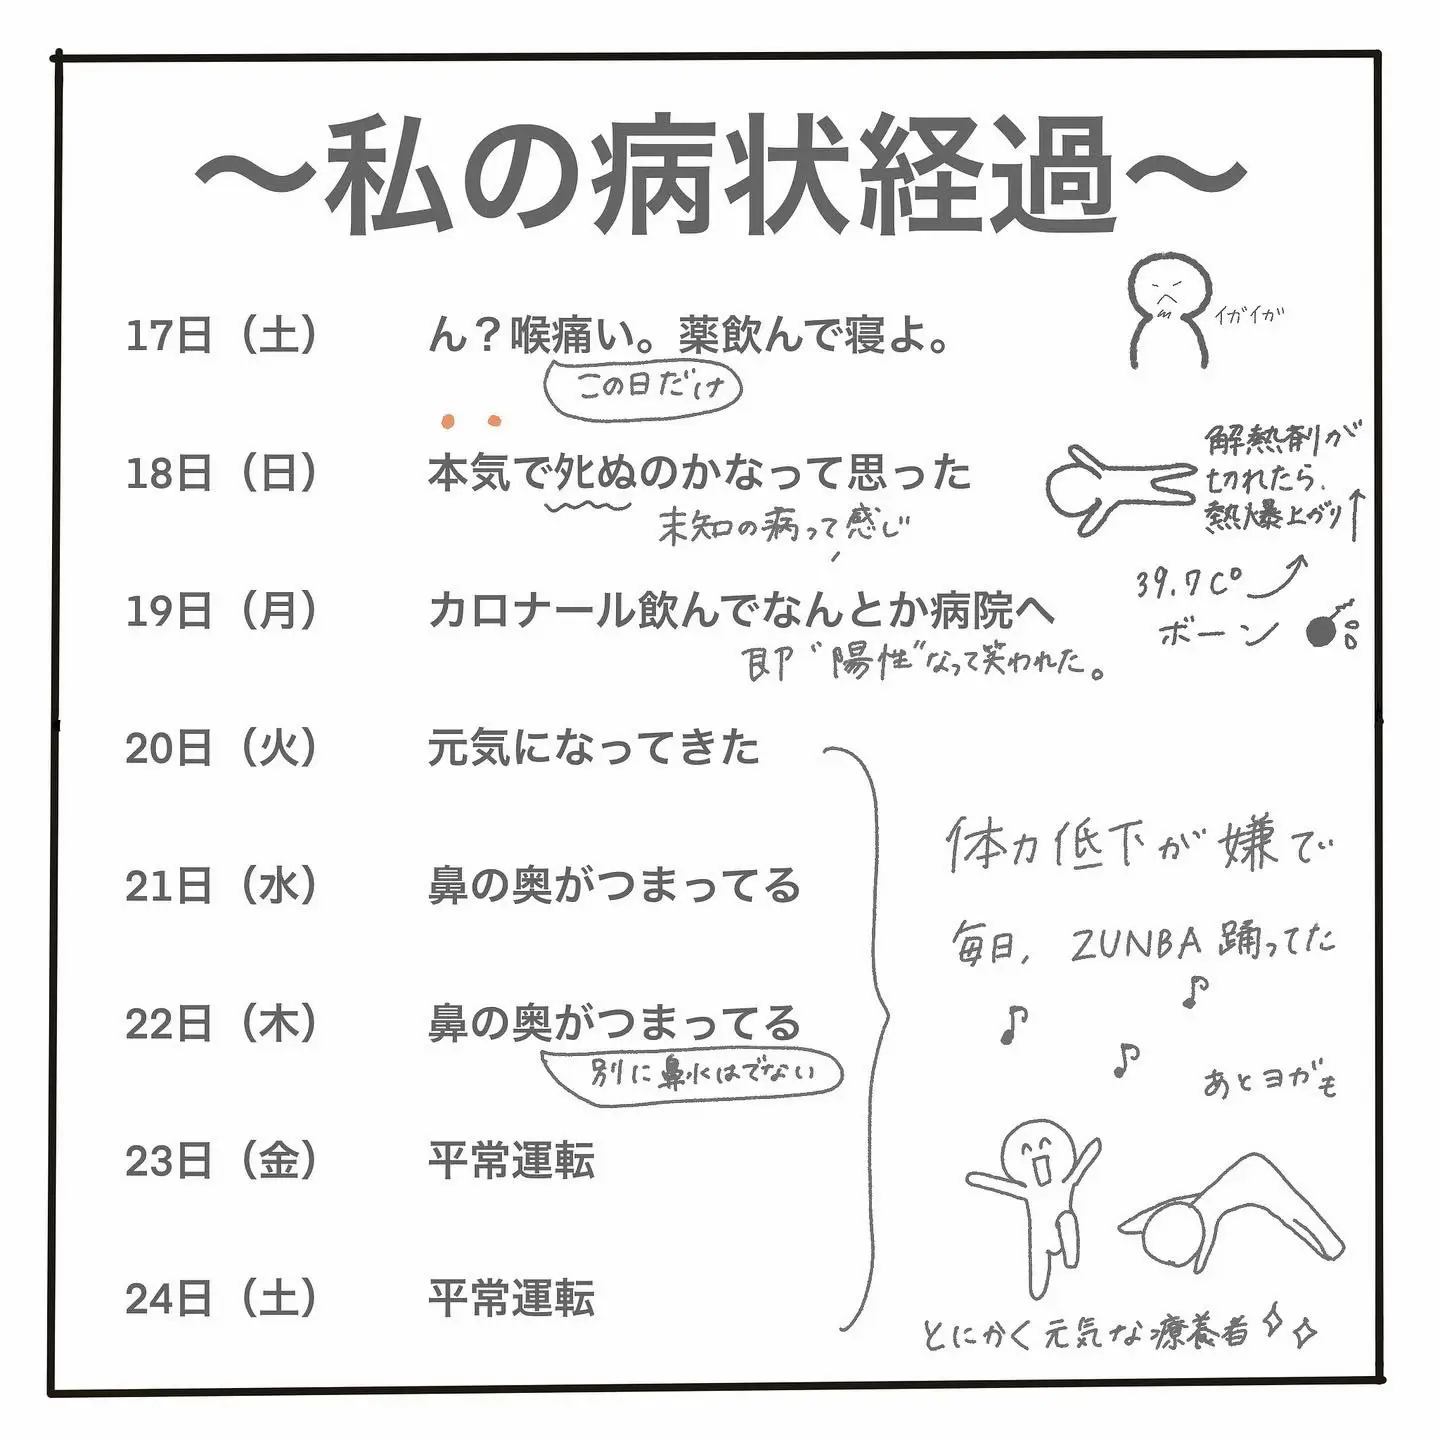 ～私の病状経過～
17日（土）　ん？喉痛い。薬飲んで寝よ。
イガイガ
この日だけ
18日（日）　本気でﾀﾋぬのかなって思った
未知の病って感じ
解熱剤が
切れたら、
熱爆上がり↑
39.7C°
ボーン
19日（月）　カロナール飲んでなんとか病院へ
即〝陽性〟なって笑われた。
20日（火）　元気になってきた
21日（水）　鼻の奥がつまってる
22日（木）　鼻の奥がつまってる
別に鼻水はでない
23日（金）　平常運転
24日（土）　平常運転
体力低下が嫌で
毎日、ZUNBA踊ってた
♪ ♪ ♪
あとヨガも
とにかく元気な療養者